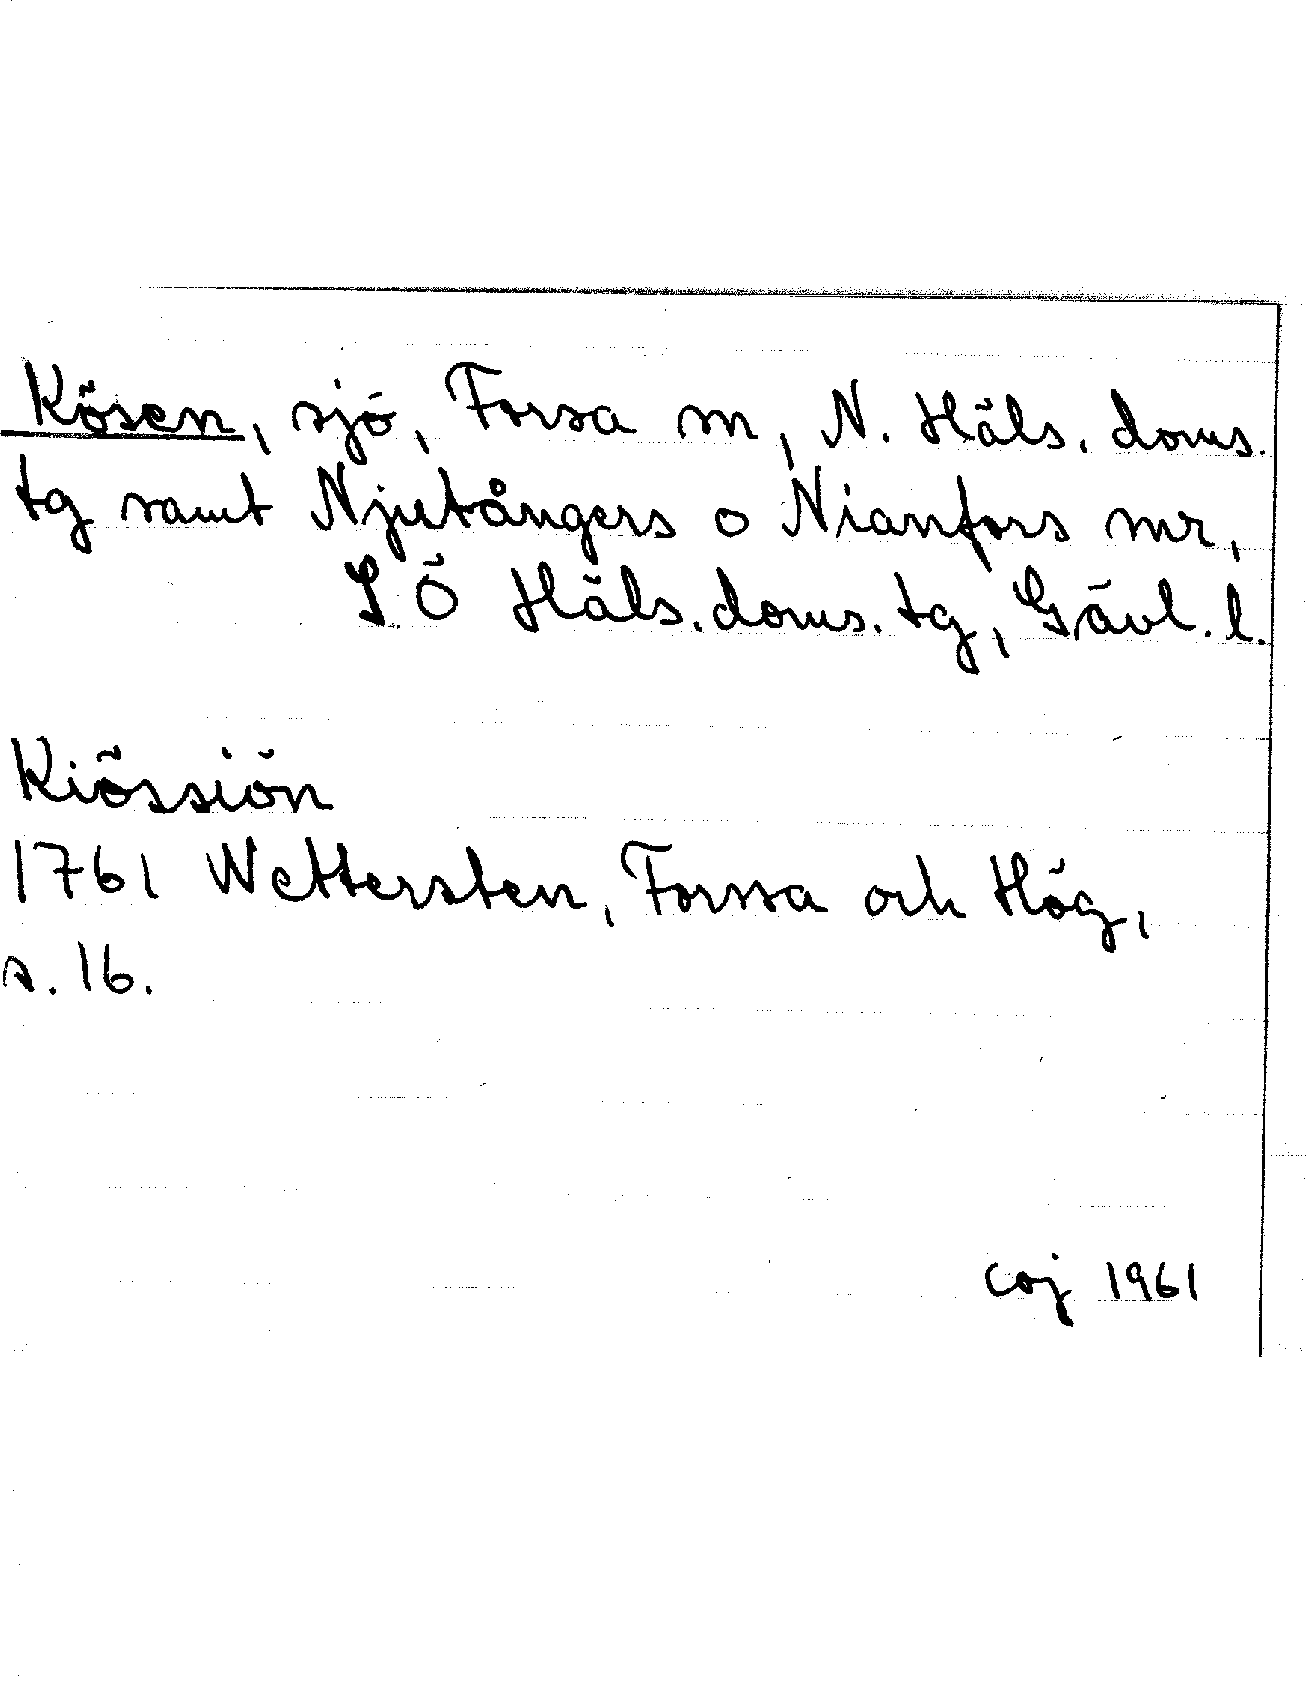 Kösen, sjö, Forsa sn, N. Häls. doms.
tg samt Njutångers o Nianfors snr,
S Ö Häls. doms. tg, Gävl. l.
Kiössiön
1761 Wettersten, Forssa och Hög,
s. 16.
coj 1961